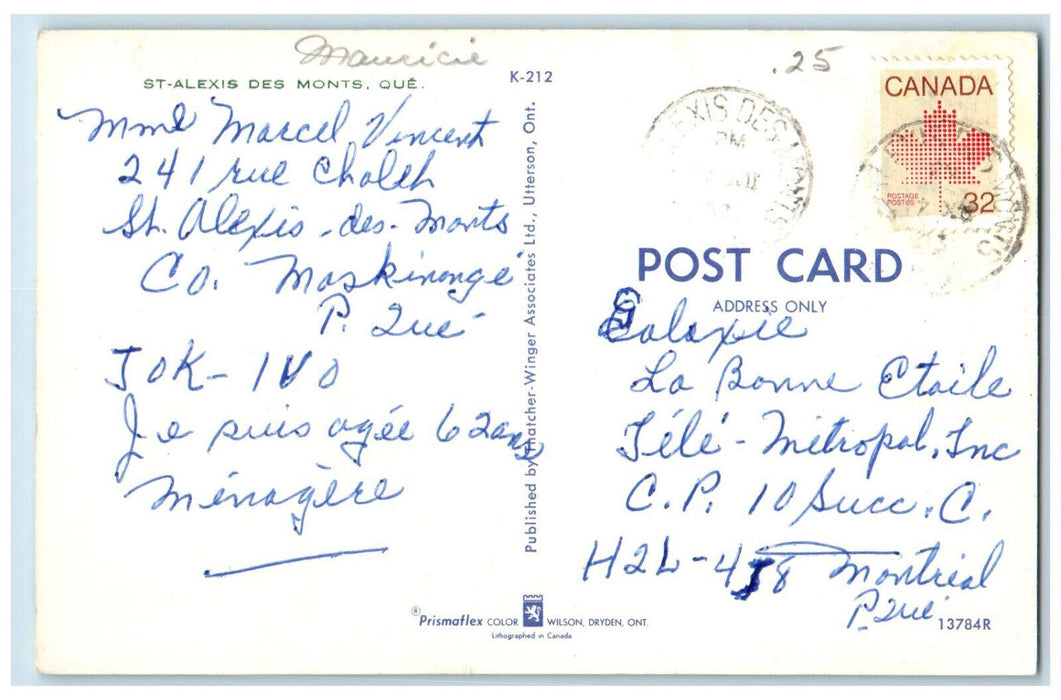 Mauricie
.25
ST-ALEXIS DES MONTS, QUÉ.
K-212
Mme Marcel Vincent
241 rue
St. Alexis-des-Monts
Co. Maskinongé
P. Qué
J0K-1V0
Je suis agée 62 ans
Ménagère
Published by Thatcher-Winger Associates Ltd., Utterson, Ont.
ALEXIS DES MONTS
PM
CANADA
POSTAGE
POSTES
32
MONTS
POST CARD
ADDRESS ONLY
Galaxie
La Bonne Etoile
Télé-Métropol, Inc
C.P. 10 Succ. C.
H2L-4J8 Montréal
P. Qué
® Prismaflex COLOR WILSON, DRYDEN, ONT.
Lithographed in Canada
13784R